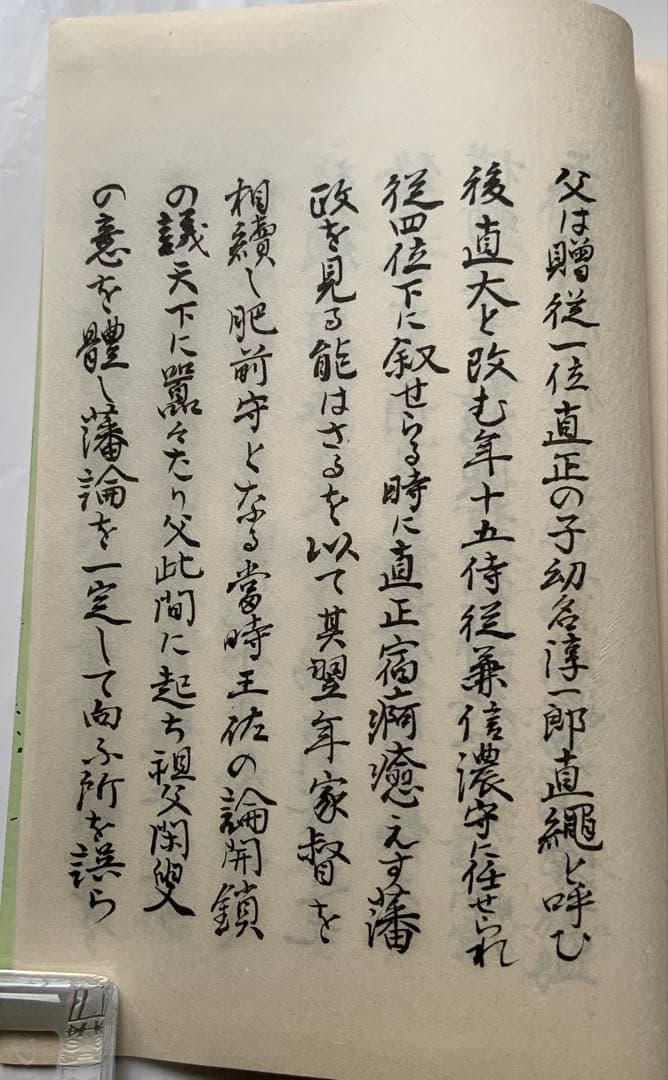 父は贈従一位直正の子幼名淳一郎直縄と呼む
後直大と改む年十五侍従兼信濃守に任せられ
従四位下に叙せらる時に直正宿痾癒えす藩
政を見る能はさるを以て其翌年家督を
相續し肥前守となる當時王佐の論開鎖
の議天下に囂々たり父此間に起ち祖父閑叟
の意を體し藩論を一定して向ふ所を誤ら